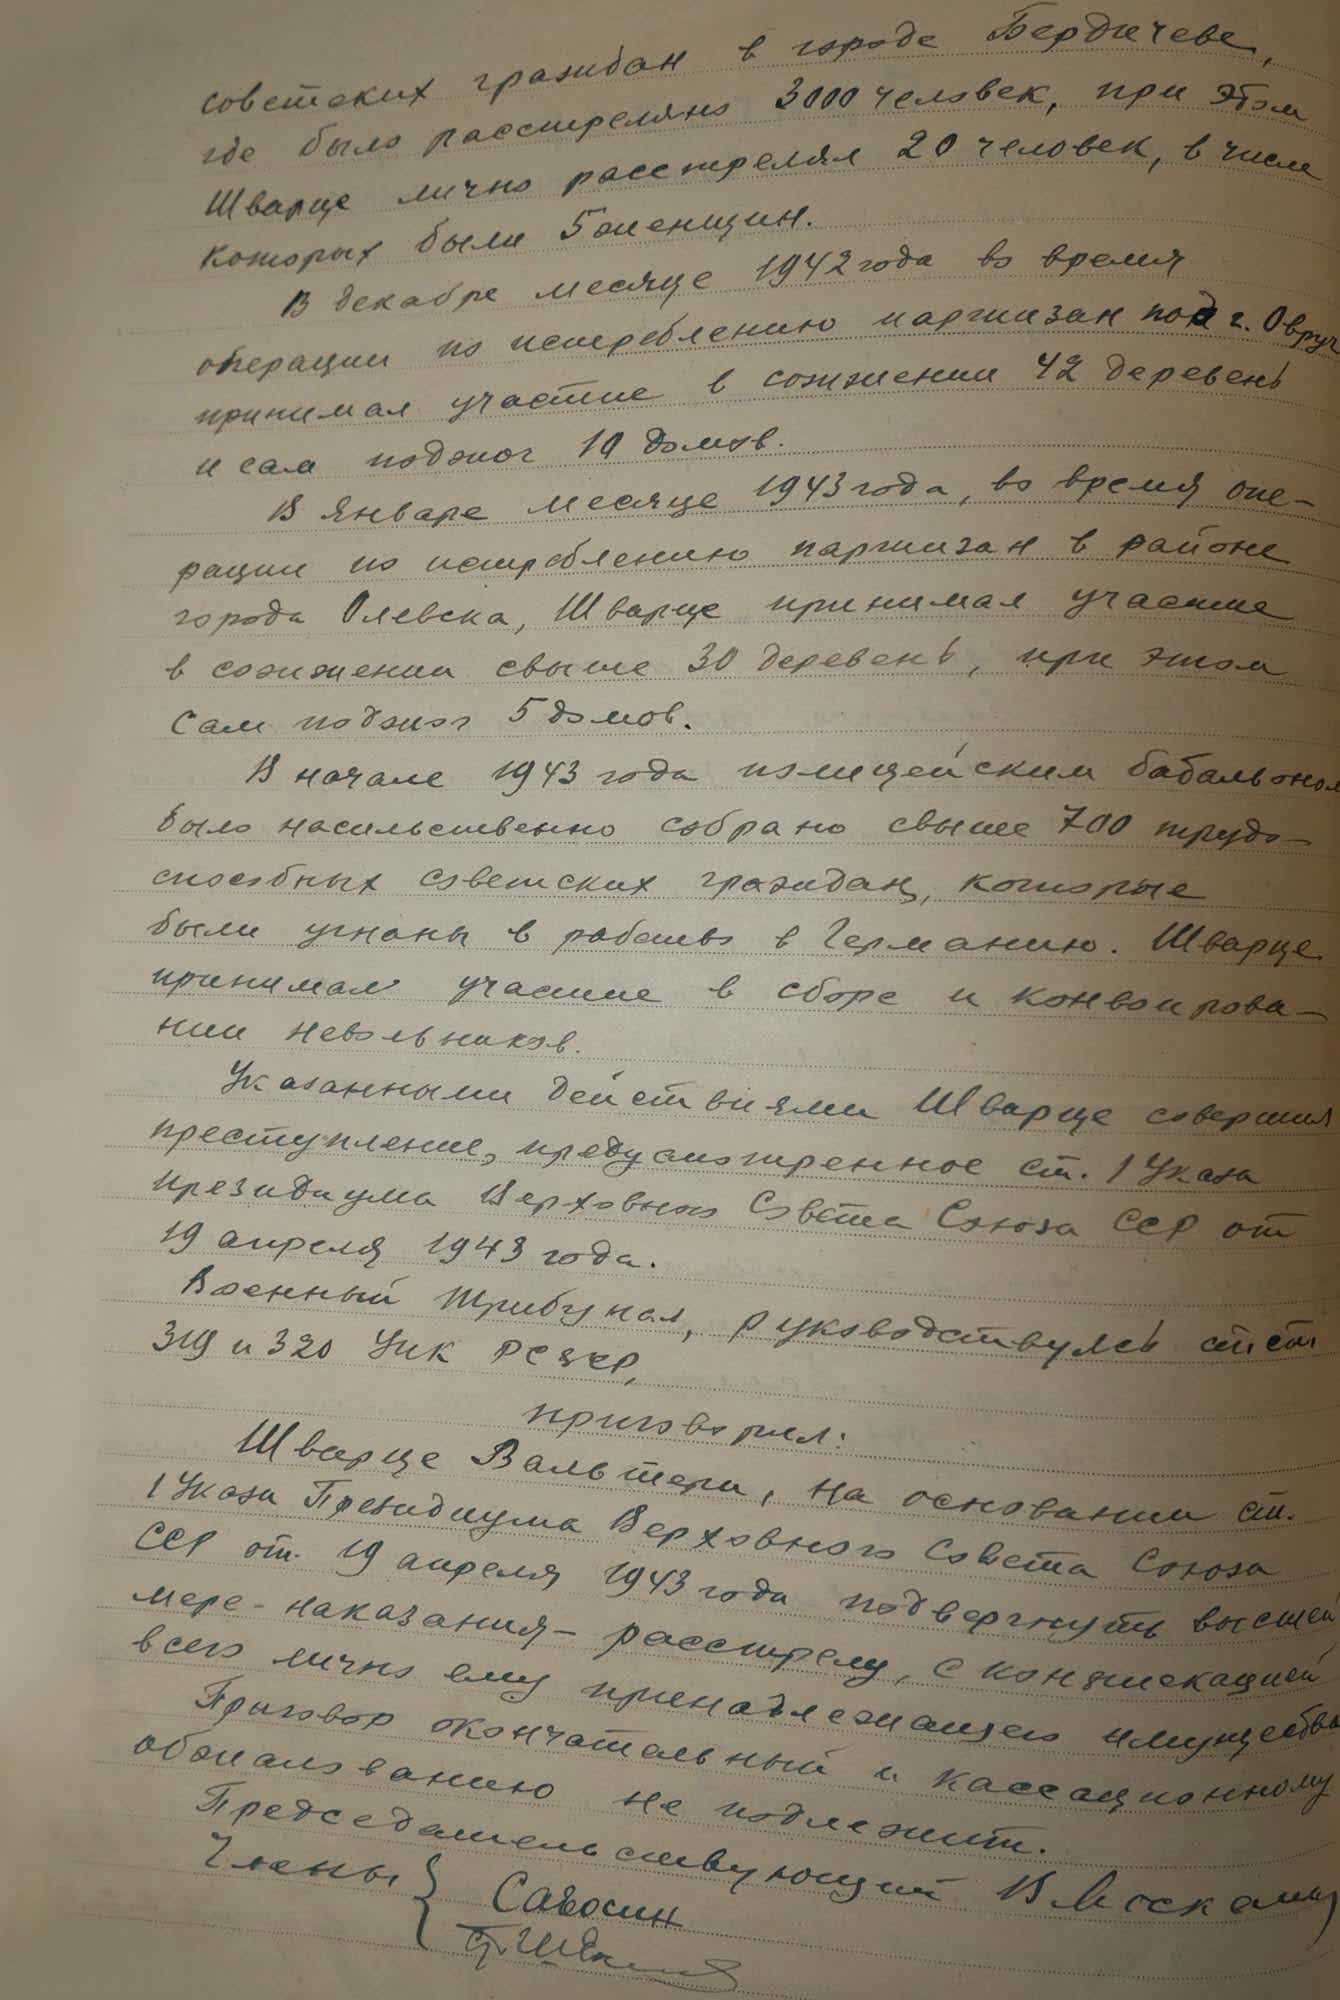 советских граждан в городе Бердичеве,
где было расстреляно 3000 человек, при этом
Шварце лично расстрелял 20 человек, в числе
которых были 5 женщин.
В декабре месяце 1942 года во время
операции по истреблению партизан под г. Овруч
принимал участие в сожжении 42 деревень
и сам поджог 10 домов.
В январе месяце 1943 года, во время опе-
рации по истреблению партизан в районе
города Олевска, Шварце принимал участие
в сожжении свыше 30 деревень, при этом
сам поджог 5 домов.
В начале 1943 года полицейским батальоном
было насильственно собрано свыше 700 трудо-
способных советских граждан, которые
были угнаны в рабство в Германию. Шварце
принимал участие в сборе и конвоирова-
нии невольников.
Указанными действиями Шварце совершил
преступление, предусмотренное ст. 1 Указа
президиума Верховного Совета Союза ССР от
19 апреля 1943 года.
Военный трибунал, руководствуясь ст.ст.
319 и 320 УПК РСФСР,
приговорил:
Шварце Вальтера, на основании ст.
1 Указа Президиума Верховного Совета Союза
ССР от 19 апреля 1943 года подвергнуть высшей
мере наказания – расстрелу, с конфискацией
всего лично ему принадлежащего имущества
Приговор окончательный и кассационному
обжалованию не подлежит.
Председательствующий
Члены { Савосин